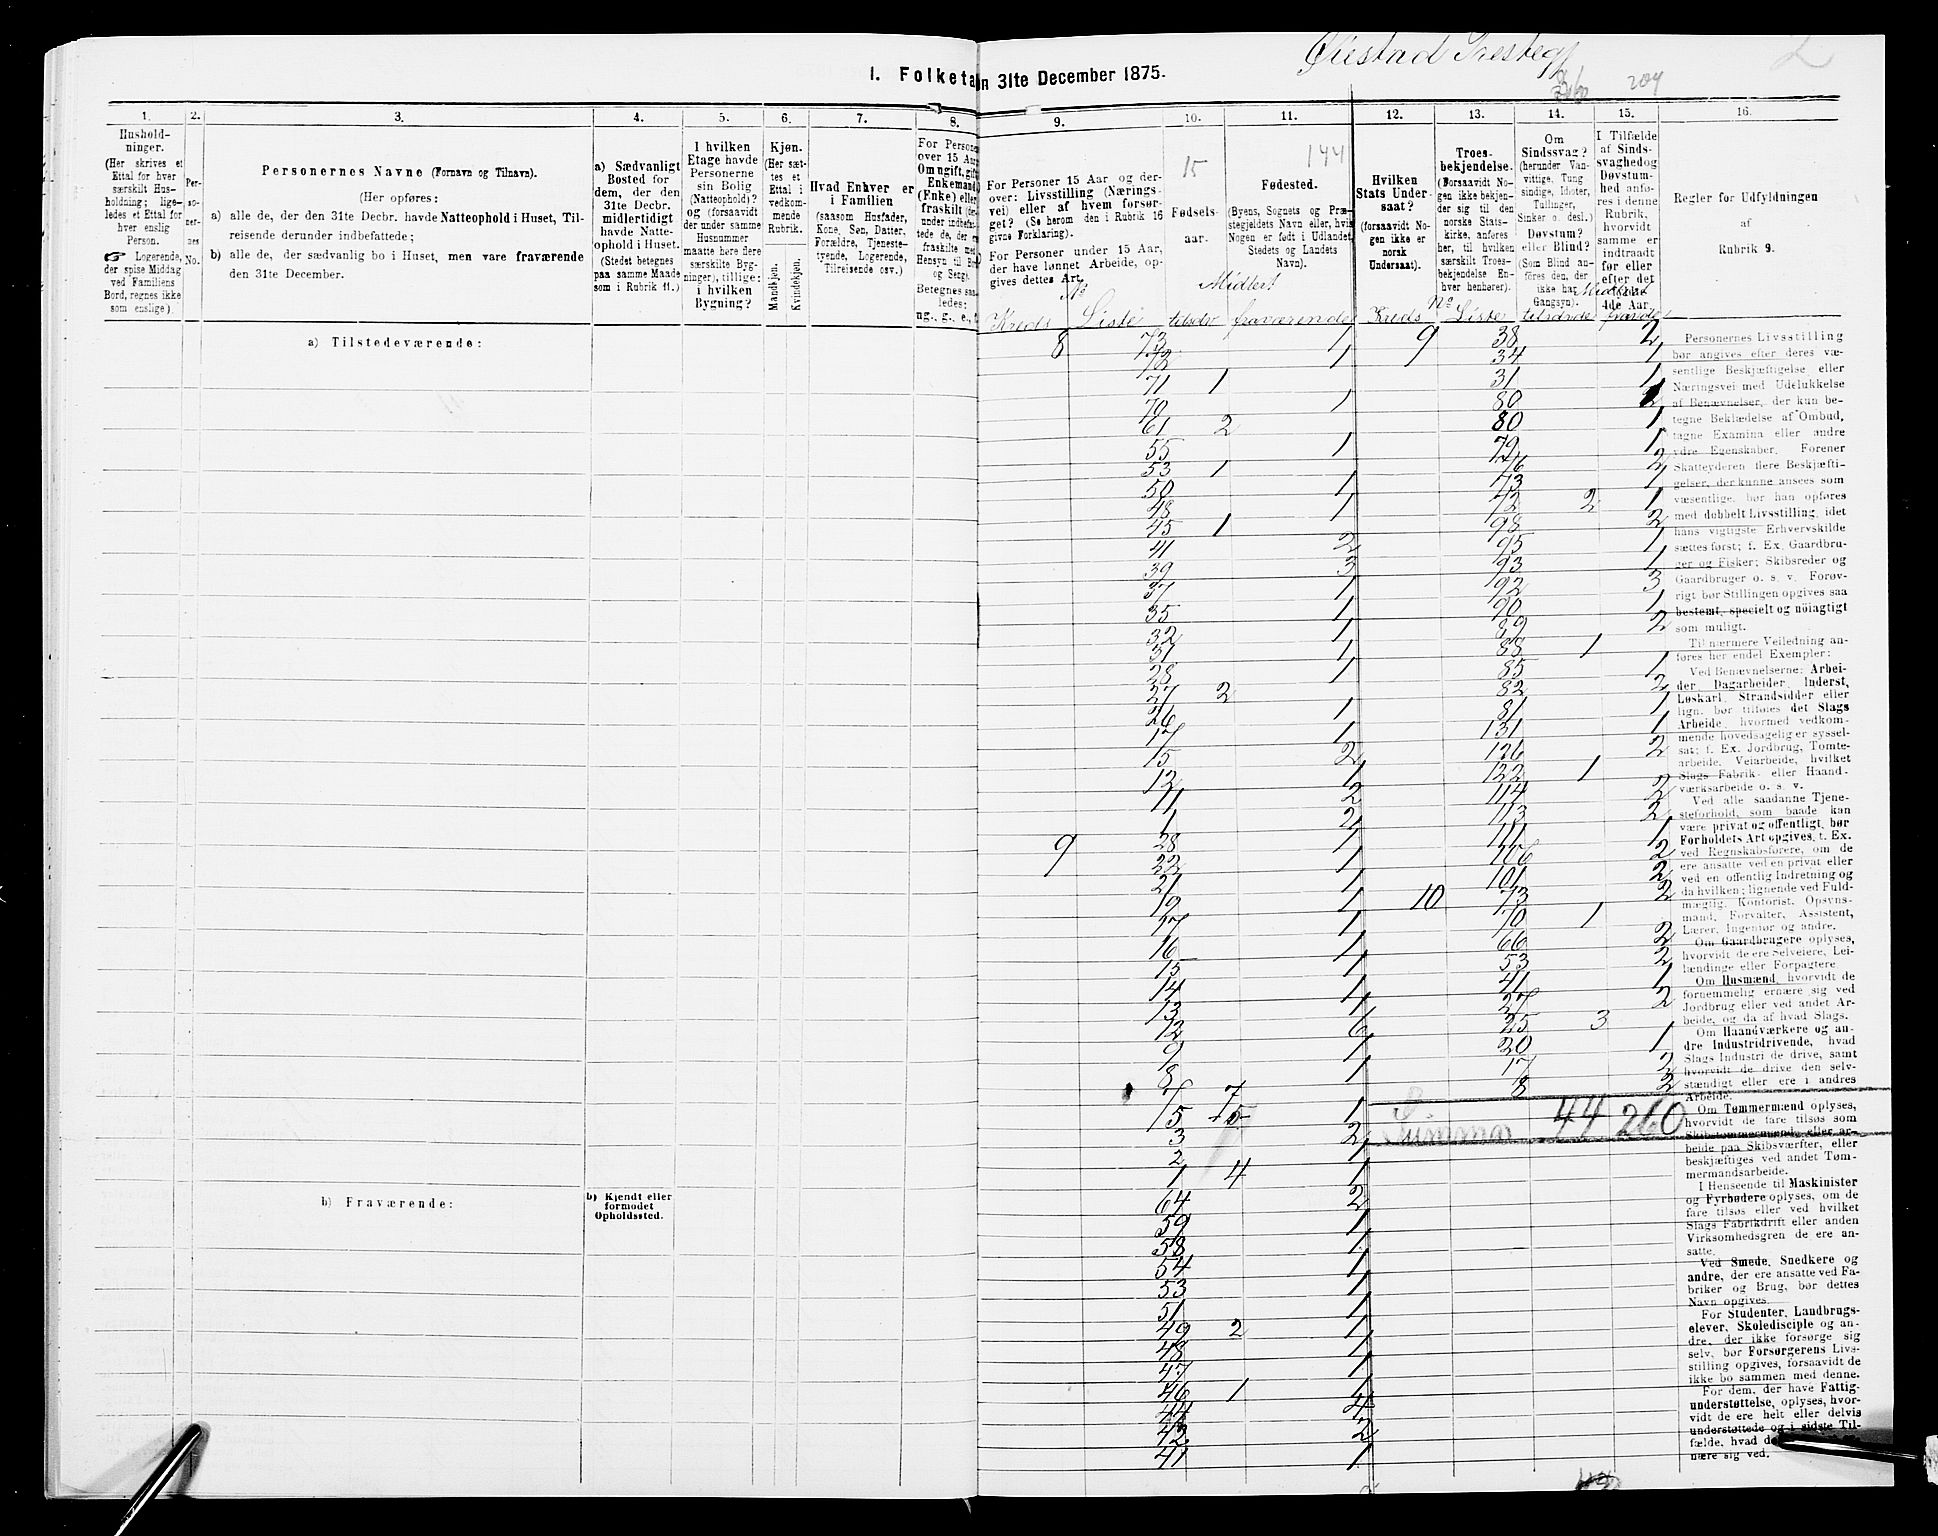 Øiestad Prestegj
2
204
I. Folketa
n 31te December 1875.
1.
2.
3.
4.
5.
6.
7.
8.
9.
10.
11.
12.
13.
14.
15.
16.
Hushold-
ninger.
(Her skrives et
Ettal for hver
særskilt Hus-
holdning; lige-
ledes et Ettal for
hver enslig
Person.
☞ Logerende,
der spise Middag
ved Familiens
Bord, regnes ikke
som enslige).
Per-
so-
ner-
nes
No.
Personernes Navne (Fornavn og Tilnavn).
(Her opføres:
a) alle de, der den 31te Decbr. havde Natteophold i Huset, Til-
reisende derunder indbefattede;
b) alle de, der sædvanlig bo i Huset, men vare fraværende
den 31te December.
a) Sædvanligt
Bosted for
dem, der den
31te Decbr.
midlertidigt
havde Natte-
ophold i Huset.
(Stedet betegnes
paa samme Maade
som i Rubrik 11.)
I hvilken
Etage havde
Personerne
sin Bolig
(Natteophold)?
og (forsaavidt
der under samme
Husnummer
maatte høre flere
særskilte Byg-
ninger, tillige:
i hvilken
Bygning?
Kjøn.
(Her sæt-
tes et
Ettal i
vedkom-
mende
Rubrik.
Mandkjøn.
Kvindekjøn.
Hvad Enhver er
i Familien
(saasom Husfader,
Kone, Søn, Datter,
Forældre, Tjeneste-
tyende, Logerende,
Tilreisende osv.)
For Person
over 15 Aar
Om ugift, gift
Enkemand
(Enke) eller
fraskilt
Betegnes saa-
ledes:
ug., g., e., f.
For Personer 15 Aar og der-
over: Livsstilling (Nærings-
vei) eller af hvem forsør-
get? (Se herom den i Rubrik 16
givne Forklaring).
For Personer under 15 Aar,
der have lønnet Arbeide, op-
gives dettes Art.
15
Fødsels-
aar.
144
Fødested.
(Byens, Sognets og Præ-
stegjeldets Navn eller, hvis
Nogen er født i Udlandet,
Stedets og Landets
Navn).
Hvilken
Stats Under-
saat?
(forsaavidt No-
gen ikke er
norsk
Undersaat).
Troes-
bekjendelse.
(Forsaavidt No-
gen ikke bekjen-
der sig til den
norske Stats-
kirke, anføres
her, til hvilken
særskilt Troes-
bekjendelse En-
hver henhører).
Om
Sindssvag?
(herunder Van-
vittige, Tung-
sindige, Idioter,
Tullinger,
Sinker o. desl.)
Døvstum?
eller Blind?
(Som Blind an-
føres den, der
ikke har
Gangsyn).
I Tilfælde
af Sinds-
svaghed og
Døvstum-
hed anfø-
res i denne
Rubrik,
hvorvidt
samme er
indtraadt
før eller
efter det
fyldte
4de Aar.
Regler for Udfyldningen
af
Rubrik 9.
No
Midlert
No
Midlert
Kreds Liste tilstdv fraværende Kreds Liste tilstdnde fravdde
a) Tilstedeværende:
8 73 1 9 38 2
72 1 34 1
71 1 31 1
70 1 80 2
61 2 80 1
55 1 79 1
53 1 76 2
50 1 73 1
48 1 72 2 1
45 1 98 2
41 2 95 1
39 3 93 1
37 1 92 3
35 1 90 1
32 1 89 2
31 1 88 1
28 1 85 1
27 2 82 2
26 1 81 1
17 1 131 1
15 2 126 2
12 1 122 1
11 2 114 2
1 2 113 2
9 28 1 111 1
22 1 106 2
21 1 101 2
19 1 10 73 2
17 1 70 1
16 1 66 2
15 1 53 2
14 1 41 1
13 1 27 2
12 6 25 3
9 1 20 1
8 1 17 2
7 7 8 2
5 1
Summa 44 260
3 2
2 1
1 4 1
64 2
59 1
58 1
54 1
53 1
51 1
49 2 1
48 1
47 1
46 1 1
44 4
43 2
41 1
b) Fraværende:
b) Kjendt eller
formodet
Opholdssted.
Personernes Livsstilling
bør angives efter deres væ-
sentlige Beskjæftigelse eller
Næringsvei med Udelukkelse
af Benævnelser, der kun be-
tegne Beklædelse af Ombud,
tagne Examina eller andre
ydre Egenskaber. Forener
Skatteyderen flere Beskjæfti-
gelser, der kunne ansees som
væsentlige, bør han opføres
med dobbelt Livsstilling, idet
hans vigtigste Erhvervskilde
sættes først; f. Ex. Gaardbru-
ger og Fisker; Skibsreder og
Gaardbruger o. s. v. Forøv-
rigt bør Stillingen opgives saa
bestemt, specielt og nøiagtigt
som muligt.
Til nærmere Veiledning an-
føres her endel Exempler:
Ved Benævnelserne: Arbei-
der, Dagarbeider, Inderst,
Løskarl, Strandsidder eller
lign. bør tilføies det Slags
Arbeide, hvormed vedkom-
mende hovedsagelig er syssel-
sat; f. Ex. Jordbrug, Tomte-
arbeide, Veiarbeide, hvilket
Slags Fabrik- eller Haand-
værksarbeide o. s. v.
Ved alle saadanne Tjene-
steforhold, som baade kan
være privat og offentligt, bør
Forholdets Art opgives, t. Ex.
ved Regnskabsførere, om de
ere ansatte ved en privat eller
ved en offentlig Indretning og
da hvilken; lignende ved Fuld-
mægtig, Kontorist, Opsyns-
mand, Forvalter, Assistent,
Lærer, Ingeniør og andre.
Om Gaardbrugere oplyses,
hvorvidt de ere Selveiere, Lei-
lændinge eller Forpagtere.
Om Husmænd, hvorvidt de
fornemmelig ernære sig ved
Jordbrug eller ved andet Ar-
beide, og da af hvad Slags.
Om Haandværkere og an-
dre Industridrivende, hvad
Slags Industri de drive, samt
hvorvidt de drive den selv-
stændigt eller ere i andres
Arbeide.
Om Tømmermænd oplyses,
hvorvidt de fare tilsøs som
Skibstømmermænd eller ar-
beide paa Skibsværfter, eller
beskjæftiges ved andet Tøm-
mermandsarbeide.
I Henseende til Maskinister
og Fyrbødere oplyses, om de
fare tilsøs eller ved hvilket
Slags Fabrikdrift eller anden
Virksomhedsgren de ere an-
satte.
Ved Smede, Snedkere og
andre, der ere ansatte ved Fa-
briker og Brug, bør dettes
Navn opgives.
For Studenter, Landbrugs-
elever, Skoledisciple og an-
dre, der ikke forsørge sig
selv, bør Forsørgerens Livs-
stilling opgives, forsaavidt de
ikke bo sammen med denne.
For dem, der have Fattig-
understøttelse, oplyses, hvor-
vidt de ere helt eller delvis
understøttede og i sidste Til-
fælde, hvad de
nære sig ved.